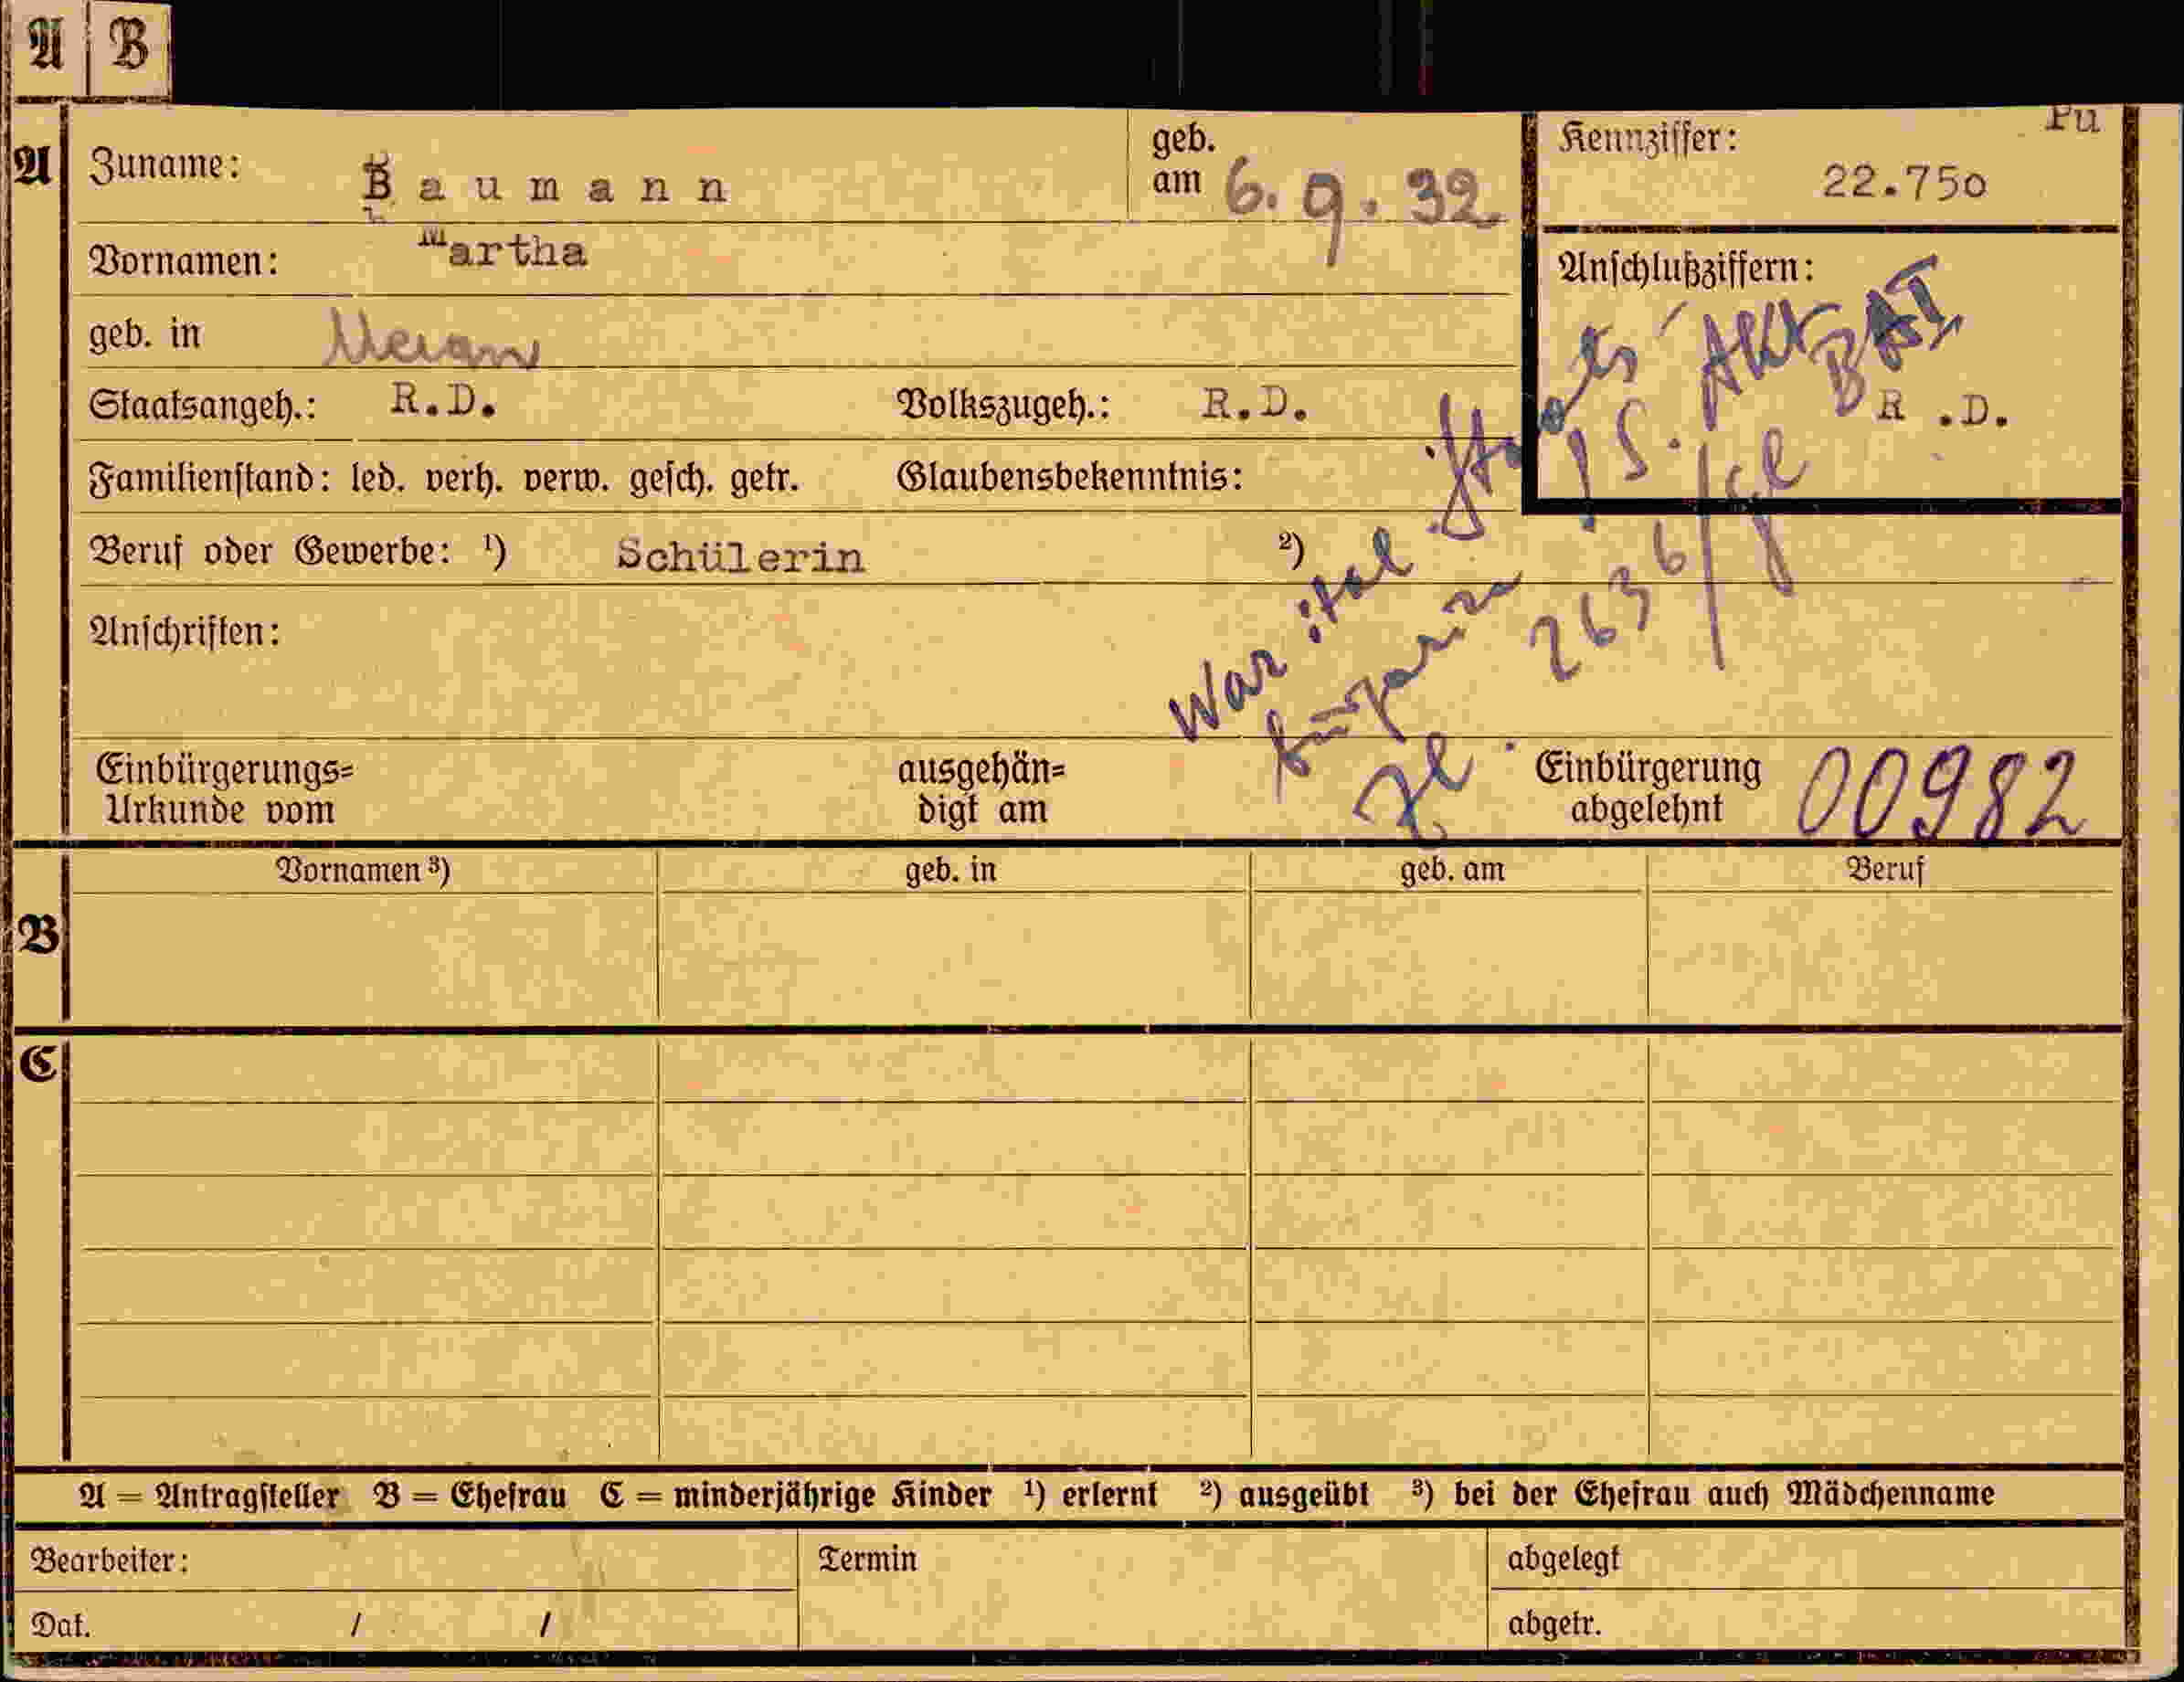 A B
A Zuname: Baumann geb. am 6.9.32 Kennziffer: Pu
22.750
Vornamen: Martha Anschlußziffern:
geb. in Meran
Staatsangeh.: R.D. Volkszugeh.: R.D. R .D.
Familienstand: led. verh. verw. gesch. getr. Glaubensbekenntnis:
Beruf oder Gewerbe: ¹) Schülerin ²)
Anschriften:
War ital. Staats
bürgerin
S. Akt BAI
2636/
Einbürgerungs= ausgehän= Einbürgerung 00982
Urkunde vom digt am abgelehnt
Vornamen ³) geb. in geb. am Beruf
B
C
A = Antragsteller B = Ehefrau C = minderjährige Kinder ¹) erlernt ²) ausgeübt ³) bei der Ehefrau auch Mädchenname
Bearbeiter: Termin abgelegt
Dat. / / abgetr.